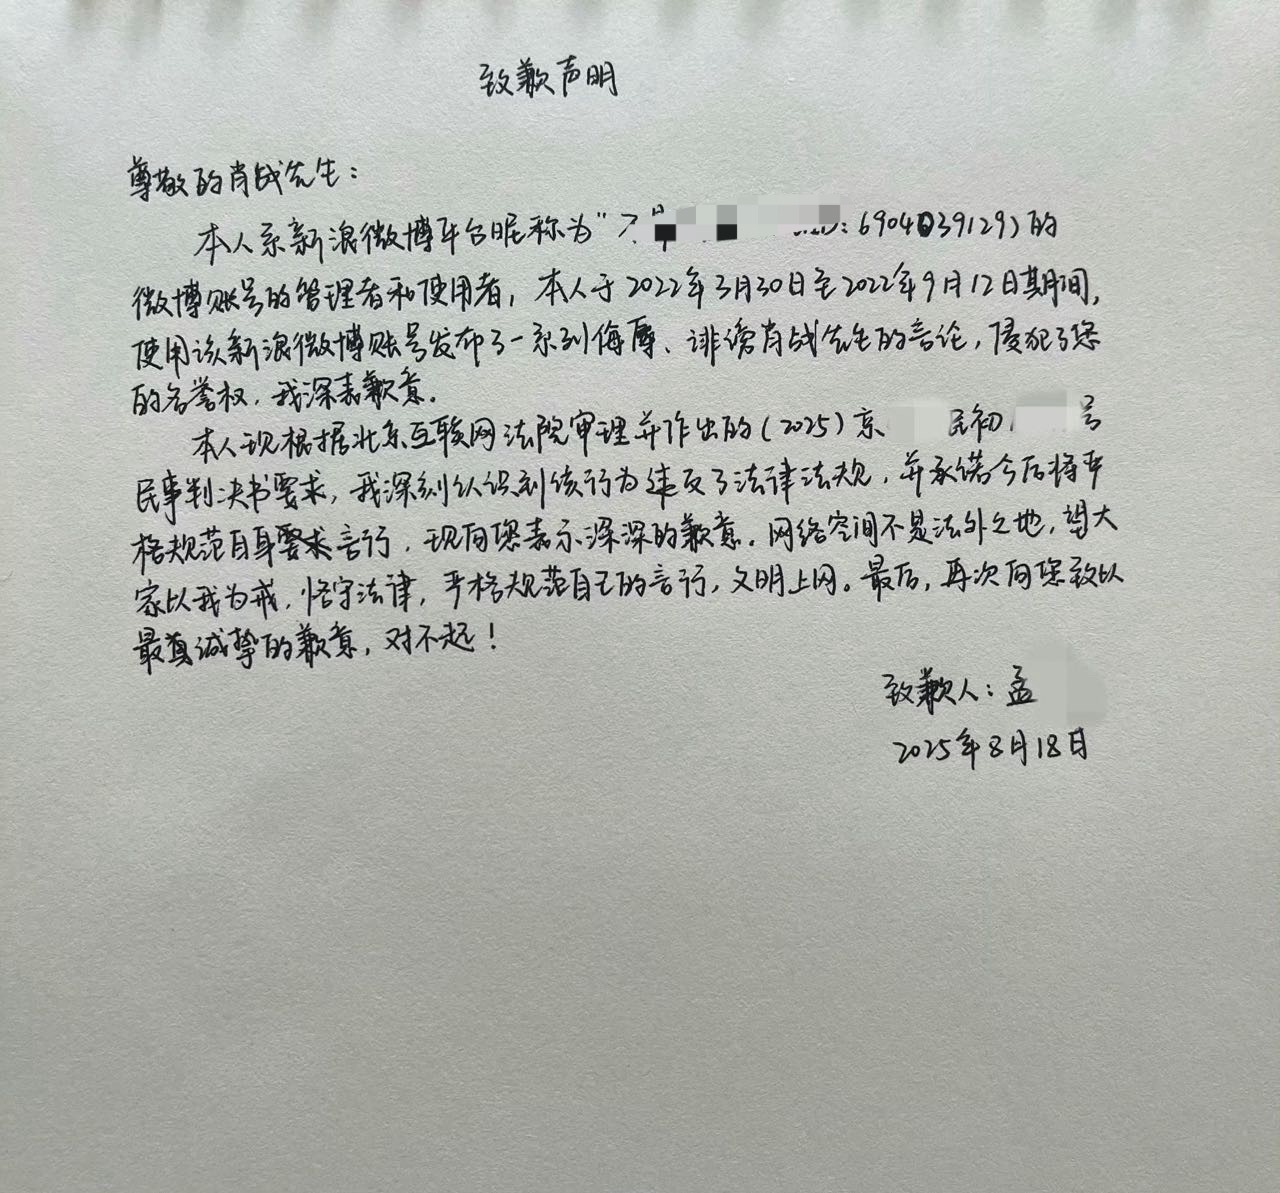 致歉声明
尊敬的肖战先生：
本人系新浪微博平台昵称为“ ID:6904039129)的
微博账号的管理者和使用者，本人于2022年3月30日至2022年9月12日期间，
使用该新浪微博账号发布了一系列侮辱、诽谤肖战先生的言论，侵犯了您
的名誉权，我深表歉意。
本人现根据北京互联网法院审理并作出的(2025)京 民初 号
民事判决书要求，我深刻认识到该行为违反了法律法规，并承诺今后将严
格规范自身要求言行，现向您表示深深的歉意。网络空间不是法外之地，望大
家以我为戒，恪守法律，严格规范自己的言行，文明上网。最后，再次向您致以
最真诚挚的歉意，对不起！
致歉人：孟
2025年8月18日